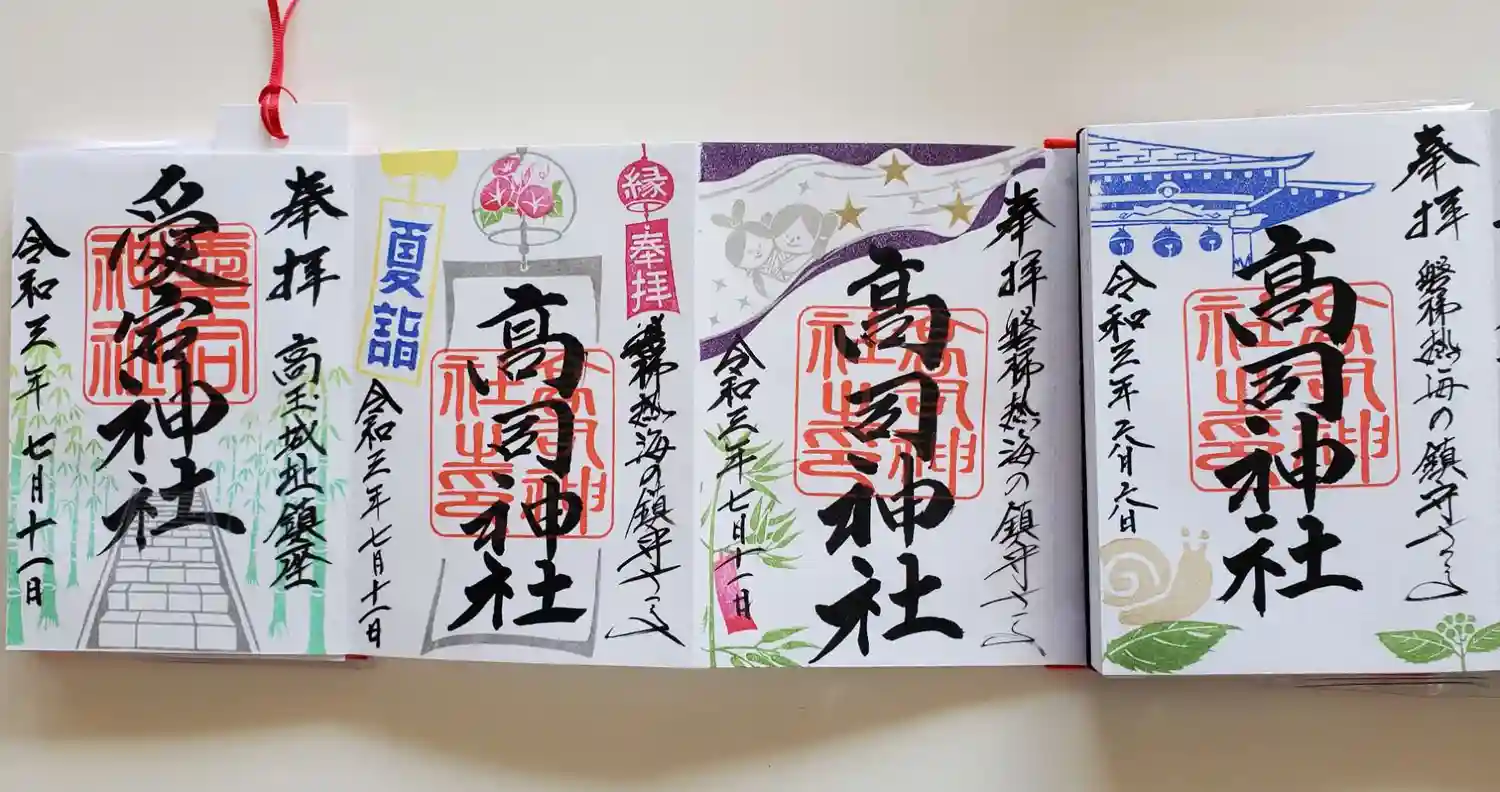 奉拝 高玉城址鎮座
愛宕神社
令和三年七月十一日
縁
奉拝
磐梯熱海の鎮守さま
髙司神社
神社之印
夏詣
令和三年七月十一日
奉拝 磐梯熱海の鎮守さま
髙司神社
神社之印
令和三年七月十一日
奉拝 磐梯熱海の鎮守さま
髙司神社
神社之印
令和三年六月六日